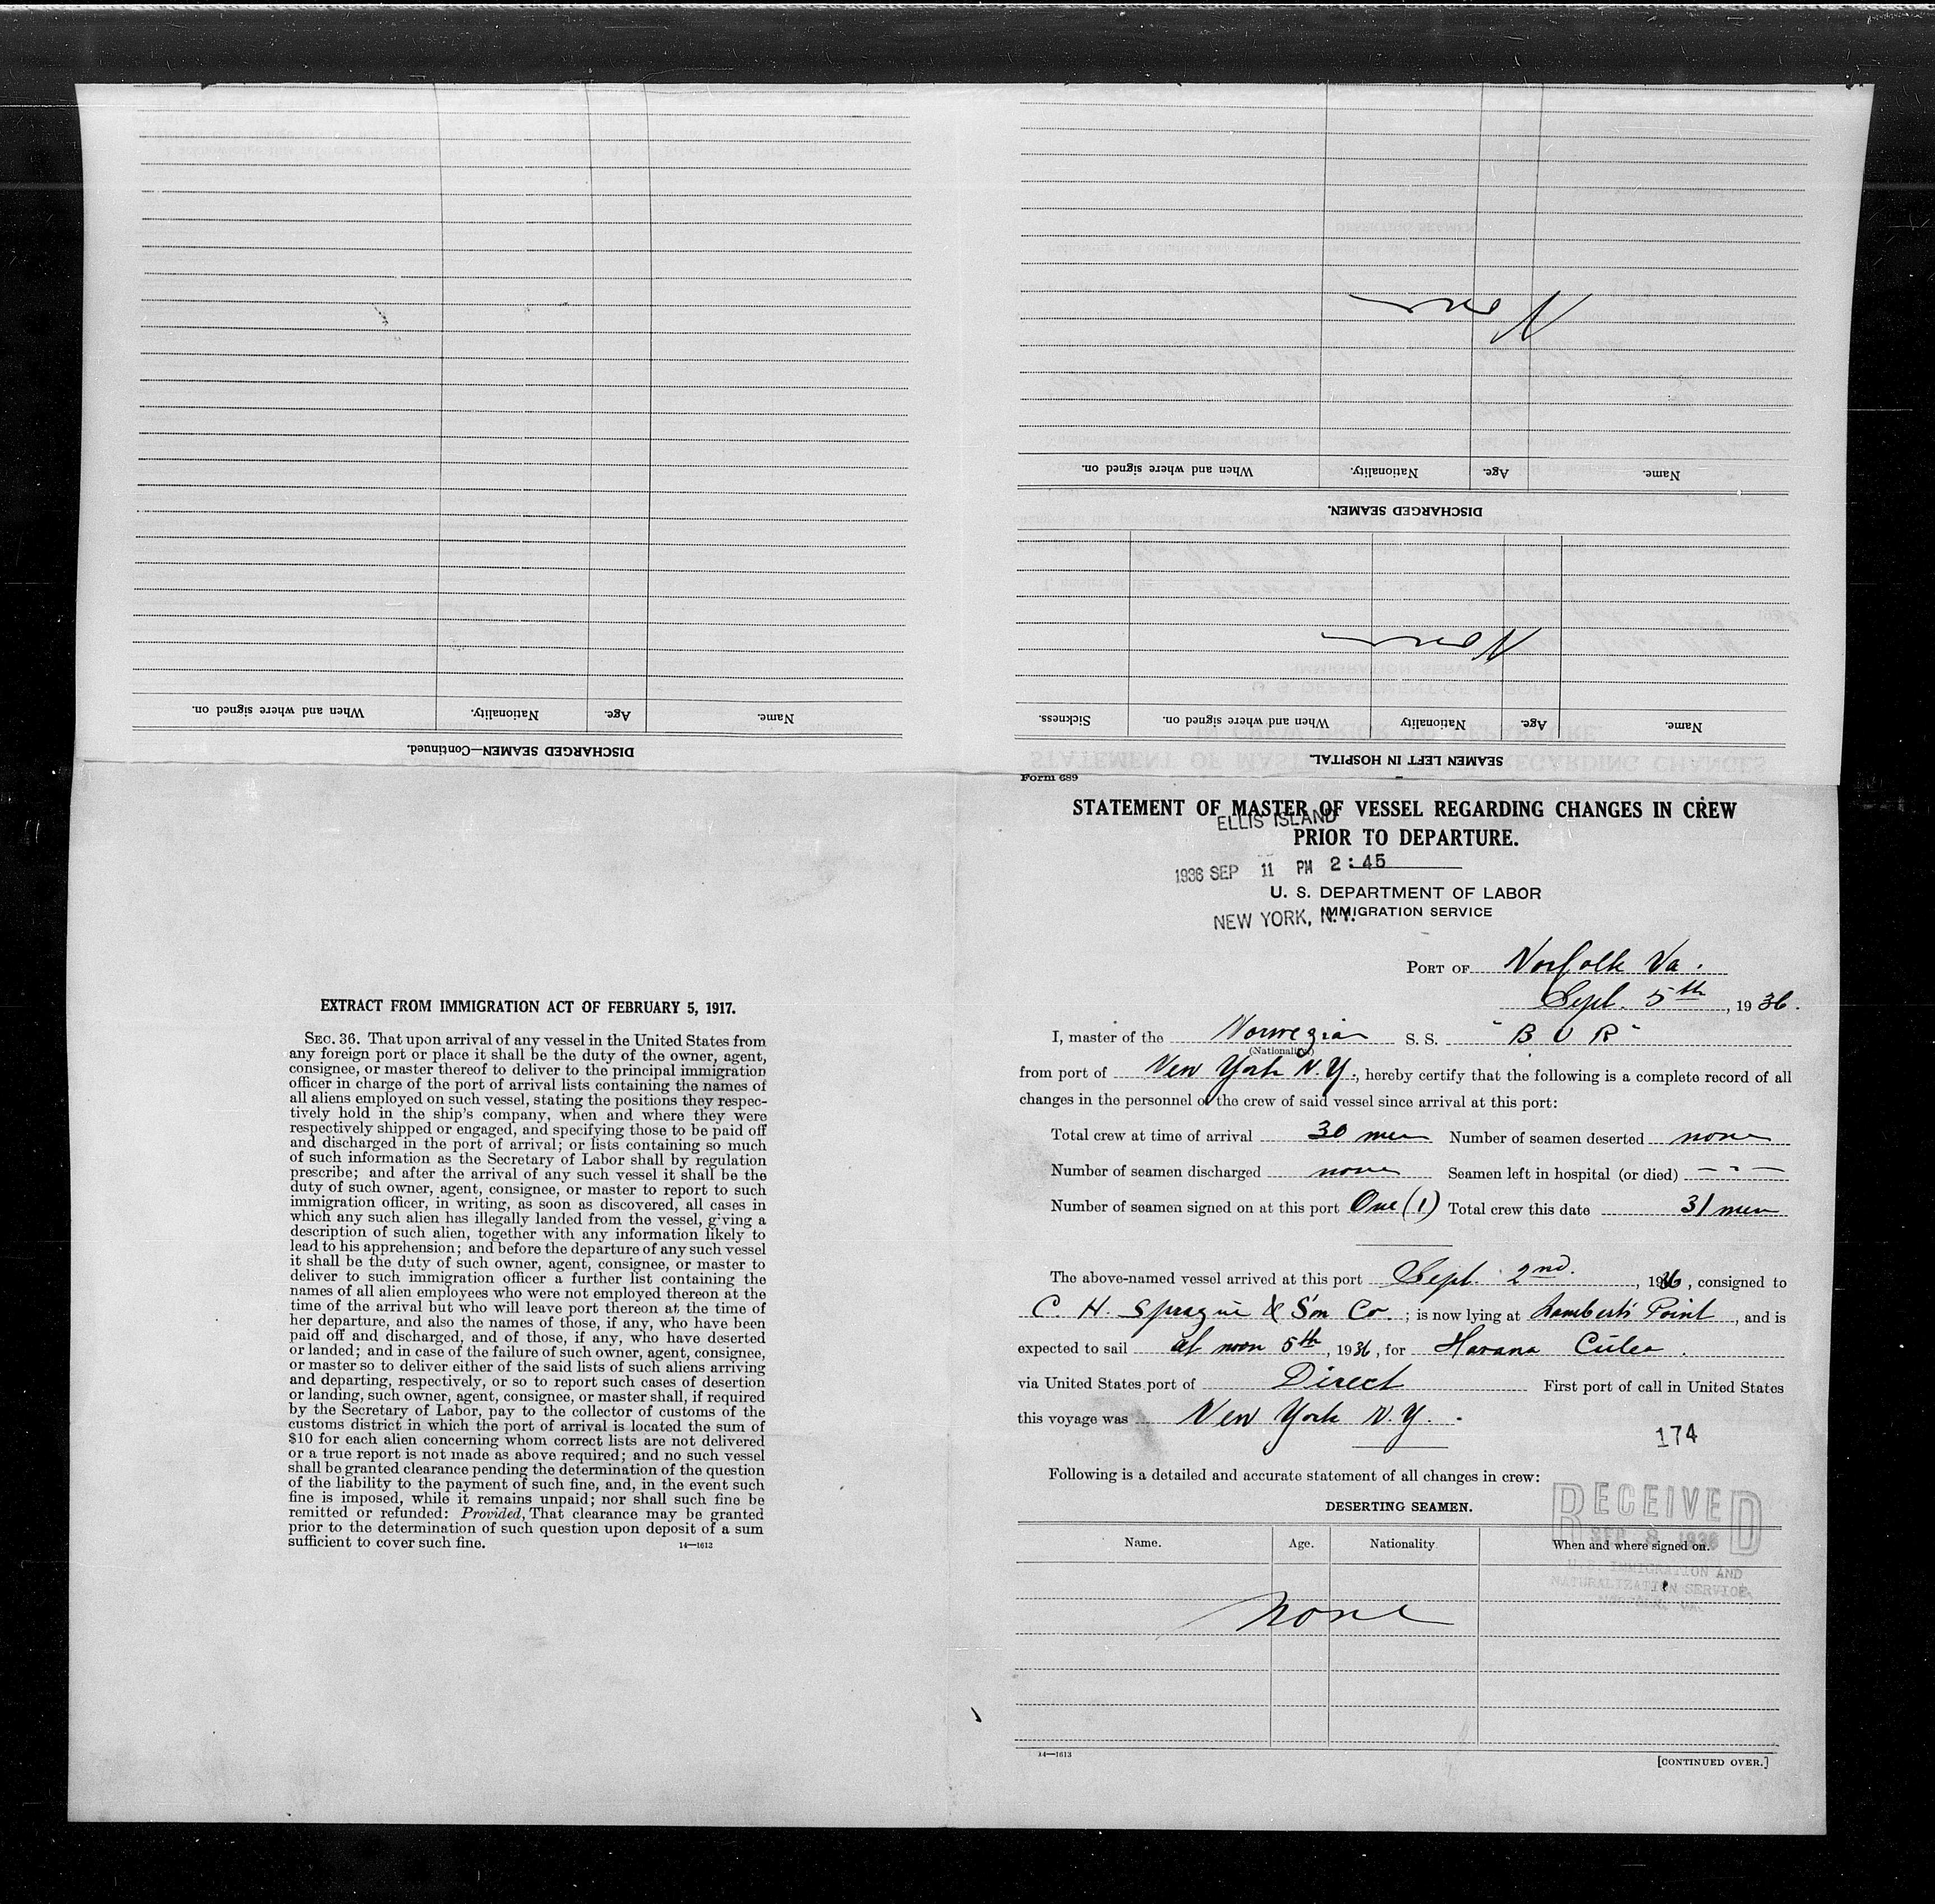 DISCHARGED SEAMEN—Continued.
Name. Age. Nationality. When and where signed on.
SEAMEN LEFT IN HOSPITAL.
Name. Age. Nationality When and where signed on. Sickness.
None
DISCHARGED SEAMEN.
Name. Age. Nationality. When and where signed on.
None
EXTRACT FROM IMMIGRATION ACT OF FEBRUARY 5, 1917.
SEC. 36. That upon arrival of any vessel in the United States from
any foreign port or place it shall be the duty of the owner, agent,
consignee, or master thereof to deliver to the principal immigration
officer in charge of the port of arrival lists containing the names of
all aliens employed on such vessel, stating the positions they respec-
tively hold in the ship's company, when and where they were
respectively shipped or engaged, and specifying those to be paid off
and discharged in the port of arrival; or lists containing so much
of such information as the Secretary of Labor shall by regulation
prescribe; and after the arrival of any such vessel it shall be the
duty of such owner, agent, consignee, or master to report to such
immigration officer, in writing, as soon as discovered, all cases in
which any such alien has illegally landed from the vessel, giving a
description of such alien, together with any information likely to
lead to his apprehension; and before the departure of any such vessel
it shall be the duty of such owner, agent, consignee, or master to
deliver to such immigration officer a further list containing the
names of all alien employees who were not employed thereon at the
time of the arrival but who will leave port thereon at the time of
her departure, and also the names of those, if any, who have been
paid off and discharged, and of those, if any, who have deserted
or landed; and in case of the failure of such owner, agent, consignee,
or master so to deliver either of the said lists of such aliens arriving
and departing, respectively, or so to report such cases of desertion
or landing, such owner, agent, consignee, or master shall, if required
by the Secretary of Labor, pay to the collector of customs of the
customs district in which the port of arrival is located the sum of
$10 for each alien concerning whom correct lists are not delivered
or a true report is not made as above required; and no such vessel
shall be granted clearance pending the determination of the question
of the liability to the payment of such fine, and, in the event such
fine is imposed, while it remains unpaid; nor shall such fine be
remitted or refunded: Provided, That clearance may be granted
prior to the determination of such question upon deposit of a sum
sufficient to cover such fine. 14—1613
Form 689
STATEMENT OF MASTER OF VESSEL REGARDING CHANGES IN CREW
ELLIS ISLAND
PRIOR TO DEPARTURE.
1936 SEP 11 PM 2:45
U. S. DEPARTMENT OF LABOR
IMMIGRATION SERVICE
NEW YORK, N.Y.
PORT OF Norfolk Va.
Sept. 5th, 1936.
I, master of the Norwegian S. S. "BUR"
(Nationality)
from port of New York N.Y., hereby certify that the following is a complete record of all
changes in the personnel of the crew of said vessel since arrival at this port:
Total crew at time of arrival 30 men Number of seamen deserted none
Number of seamen discharged none Seamen left in hospital (or died) — " —
Number of seamen signed on at this port One (1) Total crew this date 31 men
The above-named vessel arrived at this port Sept. 2nd., 1936, consigned to
C. H. Sprague & Son Co.; is now lying at Lamberts Point, and is
expected to sail at noon 5th, 1936, for Havana Cuba.
via United States port of Direct First port of call in United States
this voyage was New York N.Y.
174
Following is a detailed and accurate statement of all changes in crew:
DESERTING SEAMEN.
RECEIVED
SEP 8 1936
U.S. IMMIGRATION AND
NATURALIZATION SERVICE
Name. Age. Nationality When and where signed on.
None
14—1613
[CONTINUED OVER.]